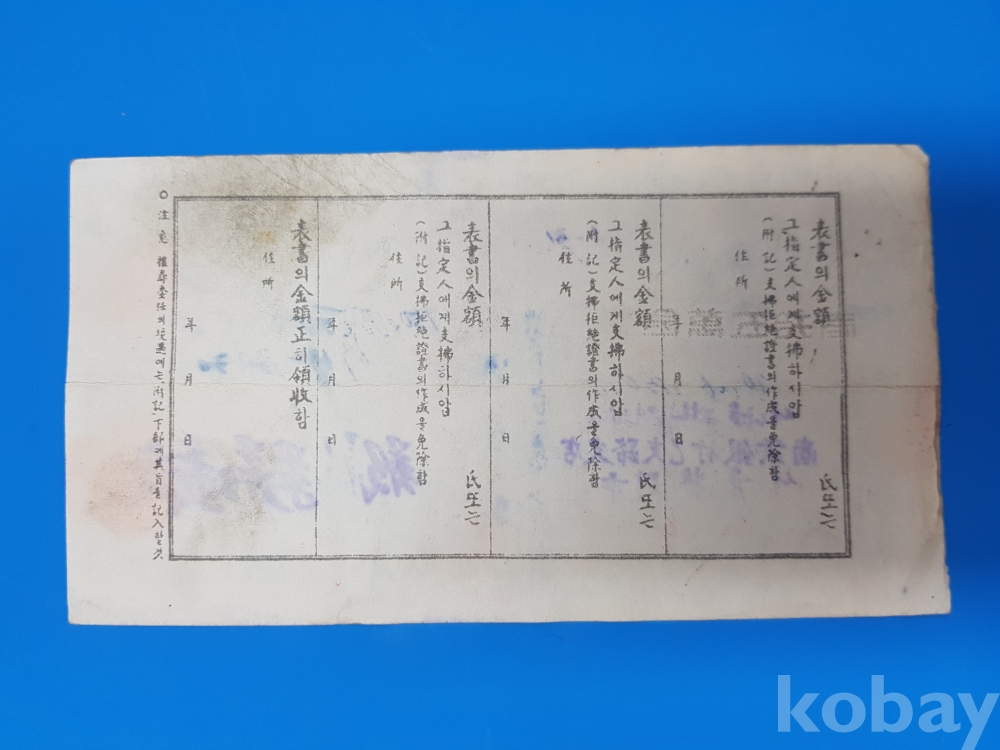 表書의金額
氏또는
그指定人에게支拂하시압
(附記)支拂拒絶證書의作成을免除함
年 月 日
住所
表書의金額
氏또는
그指定人에게支拂하시압
(附記)支拂拒絶證書의作成을免除함
年 月 日
住所
表書의金額
氏또는
그指定人에게支拂하시압
(附記)支拂拒絶證書의作成을免除함
年 月 日
住所
表書의金額正히領收함
年 月 日
住所
○注意 推尋委任의境遇에는(附記)下部에其旨를記入할것
kobay